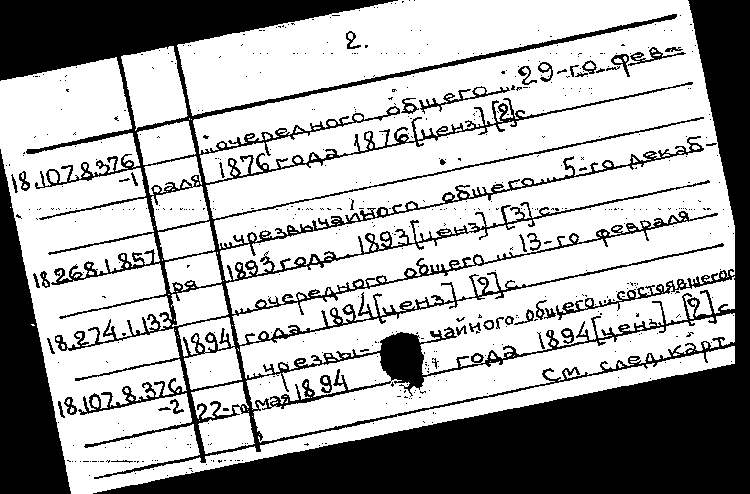 2.
...очередного общего... 29-го фев-
18.107.8.376
-1 раля 1876 года. 1876[ценз]. [2]с.
...чрезвычайного общего... 5-го декаб-
18.268.1.857
ря 1893 года. 1893[ценз]. [3]с.
...очередного общего... 13-го февраля
18.274.1.133
1894 года. 1894[ценз]. [2]с.
...чрезвы- чайного общего... состоявшегося
18.107.8.376
-2 22-го мая 1894 года. 1894[ценз]. [2]с
См. след. карт.